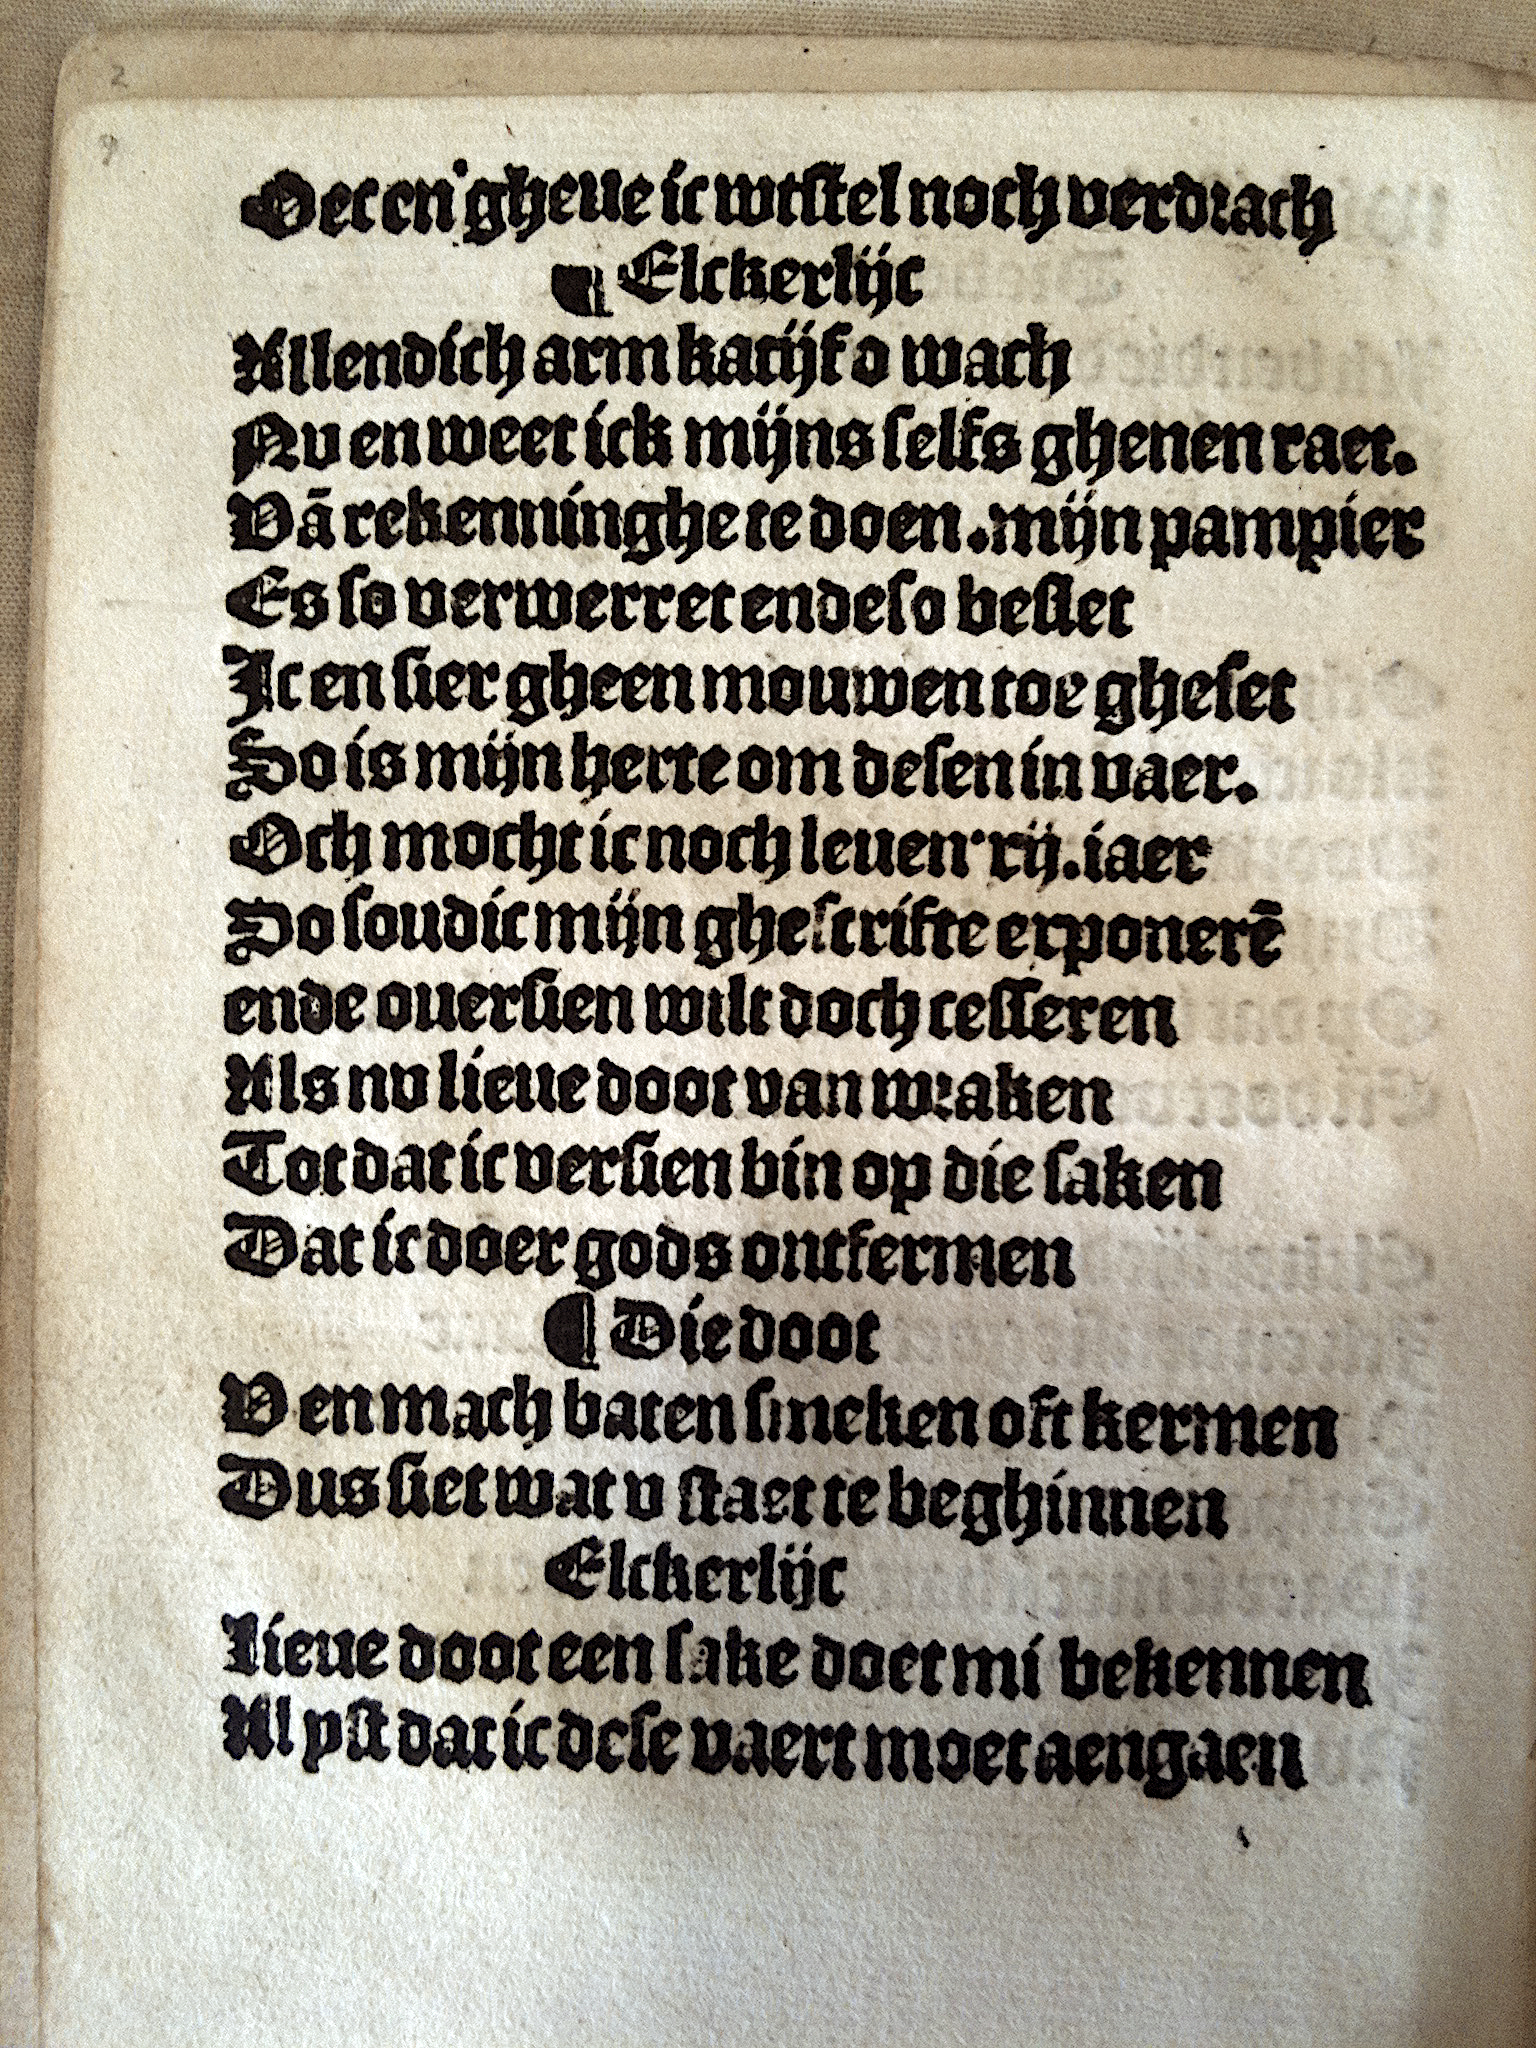 2
9
Oec en gheue ic wtstel noch verdrach
¶ Elckerlijc
Allendich arm katijf o wach
Nv en weet ick mijns selfs ghenen raet.
Vā rekenninghe te doen .mijn pampier
Es so verwerret ende so beslet
Ic en sier gheen mouwen toe gheset
So is mijn herte om desen in vaer.
Och mocht ic noch leuen .xij. iaer
So soudic mijn ghescrifte exponerē
ende ouersien wilt doch cesseren
Als nv lieue doot van wraken
Tot dat ic versien bin op die saken
Dat ic doer gods ontfermen
¶ Die doot
V en mach baten smeken oft kermen
Dus siet wat v staet te beghinnen
Elckerlijc
Lieue doot een sake doet mi bekennen
Al yst dat ic dese vaert moet aengaen